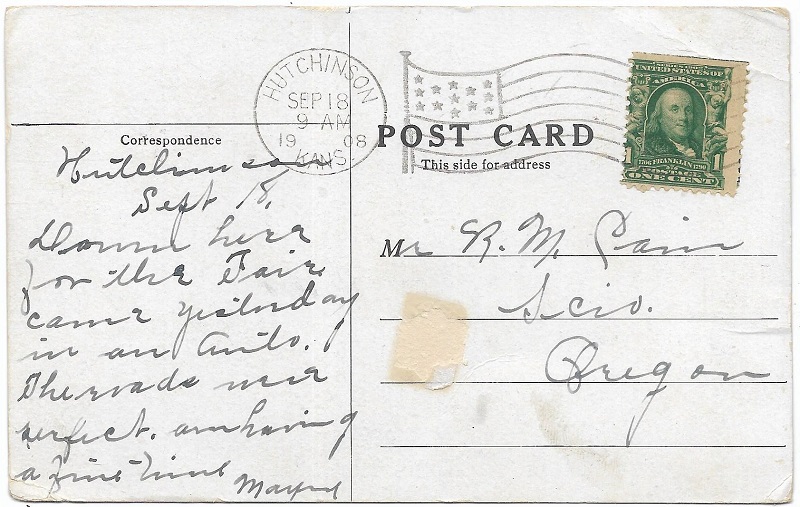 HUTCHINSON
SEP 18
9 AM
1908
KANS.
SERIES 1902
UNITED STATES OF
AMERICA
1 1706 FRANKLIN 1790 1
POSTAGE
ONE CENT
POST CARD
Correspondence
This side for address
Hutchinson
Sept 18,
Down here
for the Fair
came yesterday
in an Auto.
The roads were
perfect. am having
a fine time
Mr R. M. Cain
Scio.
Oregon